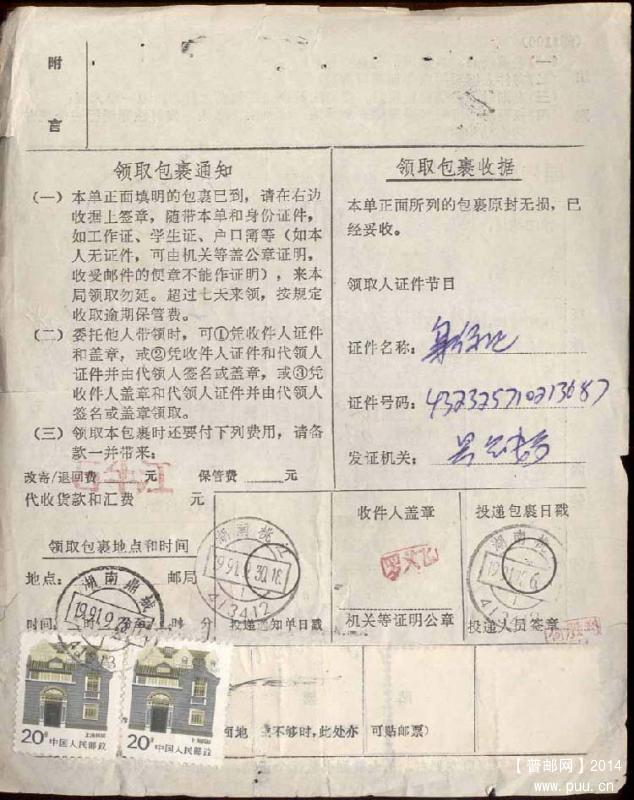 附
言
领取包裹通知
(一) 本单正面填明的包裹已到，请在右边
收据上签章，随带本单和身份证件，
如工作证、学生证、户口簿等（如本
人无证件，可由机关等盖公章证明，
收受邮件的便章不能作证明），来本
局领取勿延。超过七天来领，按规定
收取逾期保管费。
(二) 委托他人带领时，可①凭收件人证件
和盖章，或②凭收件人证件和代领人
证件并由代领人签名或盖章，或③凭
收件人盖章和代领人证件并由代领人
签名或盖章领取。
(三) 领取本包裹时还要付下列费用，请备
款一并带来：
改寄/退回费 元 保管费 元
代收货款和汇费 元
领取包裹地点和时间
地点： 邮局
时间： 时 分
领取包裹收据
本单正面所列的包裹原封无损，已
经妥收。
领取人证件节目
证件名称： 身份证
证件号码：
发证机关：
投递通知单日戳
收件人盖章
机关等证明公章
投递包裹日戳
投递人员签章
湖南桃江
413412
湖南鼎城
湖南桃江
413412
上海民居
20分 中国人民邮政
上海民居
20分 中国人民邮政
不够时，此处亦可贴邮票）
【普邮网】2014
www.puu.cn